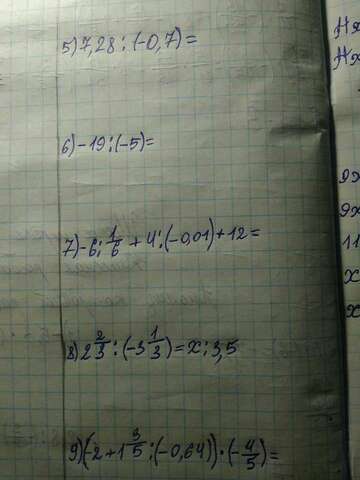 5) 7,28 : (-0,7) =
6) -19 : (-5) =
7) -6 : 1/6 + 4 : (-0,01) + 12 =
8) 2 2/3 : (-3 1/3) = x : 3,5
9) (-2 + 1 3/5 : (-0,64)) · (-4/5) =
Ях
Ях
9x
9x
11
x
x